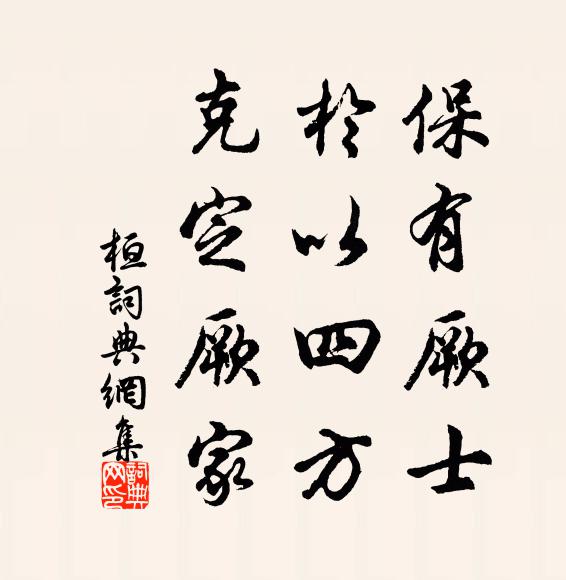 保有厥士
於以四方
克定厥家
桓詞典網集
詞典网印